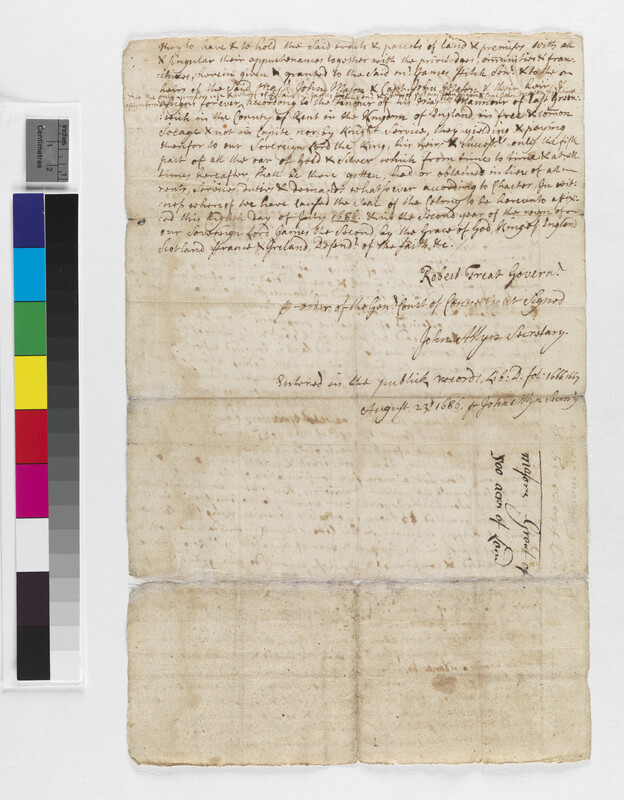 may to have & to hold the said tracts & parcels of land & premises with all
& singular their appurtenances together with the priviledges, &
herein given & granted to the said mr James Fitch & to the
heirs of the said Majr John Mason & Capt John Mason & their heirs
forever, according to the tenour of his Majties Mannour of East Green-
wich in the County of Kent in the Kingdom of England in free & comon
Socage & not in Capite nor by Knight Service, they yielding & paying
therfor to our Sovereign Lord the King, his heirs & only the fifth
part of all the oar of Gold & Silver which from time to time & at all
times hereafter shall be there gotten, had or obtained in liew of all
rents, services, duties & demands whatsoever according to Charter. In wit-
ness whereof we have caused the Seal of the Colony to be hereunto affix-
ed this day of July 1686. & in the Second year of the reign of
our Sovereign Lord James the Second by the Grace of God, King of England
Scotland France & Ireland, Defendr of the faith, &c.
Robert Treat Governr
pr order of the Genl Court of Connecticut Signed
John Allyn Secretary.
Entered in the publick records, Lib: D. fol:
August 23d John Allyn Secret
masons Grant of
500 acres of Land
Centimetres
Inches
1
2